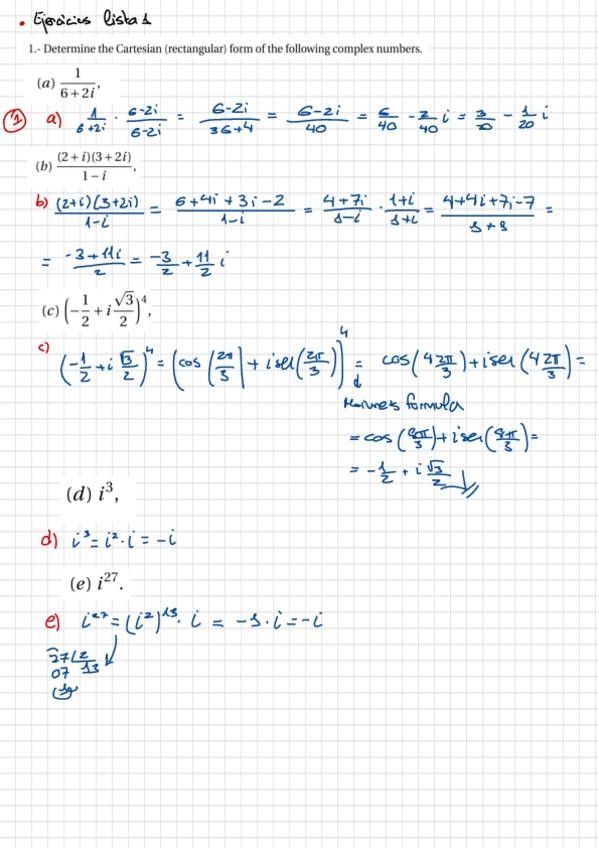 • Ejercicios lista 1
1.- Determine the Cartesian (rectangular) form of the following complex numbers.
(a) 1/(6+2i),
① a) 1/(6+2i) · (6-2i)/(6-2i) = (6-2i)/(36+4) = (6-2i)/40 = 6/40 - 2/40 i = 3/20 - 1/20 i
(b) (2+i)(3+2i)/(1-i),
b) (2+i)(3+2i)/(1-i) = (6+4i+3i-2)/(1-i) = (4+7i)/(1-i) · (1+i)/(1+i) = (4+4i+7i-7)/(1+1) =
= (-3+11i)/2 = -3/2 + 11/2 i
(c) (-1/2 + i √3/2)^4,
c) (-1/2 + i √3/2)^4 = (cos(2π/3) + i sen(2π/3))^4 = cos(4 2π/3) + i sen(4 2π/3) =
formula
= cos(8π/3) + i sen(8π/3) =
= -1/2 + i √3/2
(d) i³,
d) i³ = i² · i = -i
(e) i²⁷.
e) i²⁷ = (i²)¹³ · i = -1 · i = -i
27 | 2
07 13